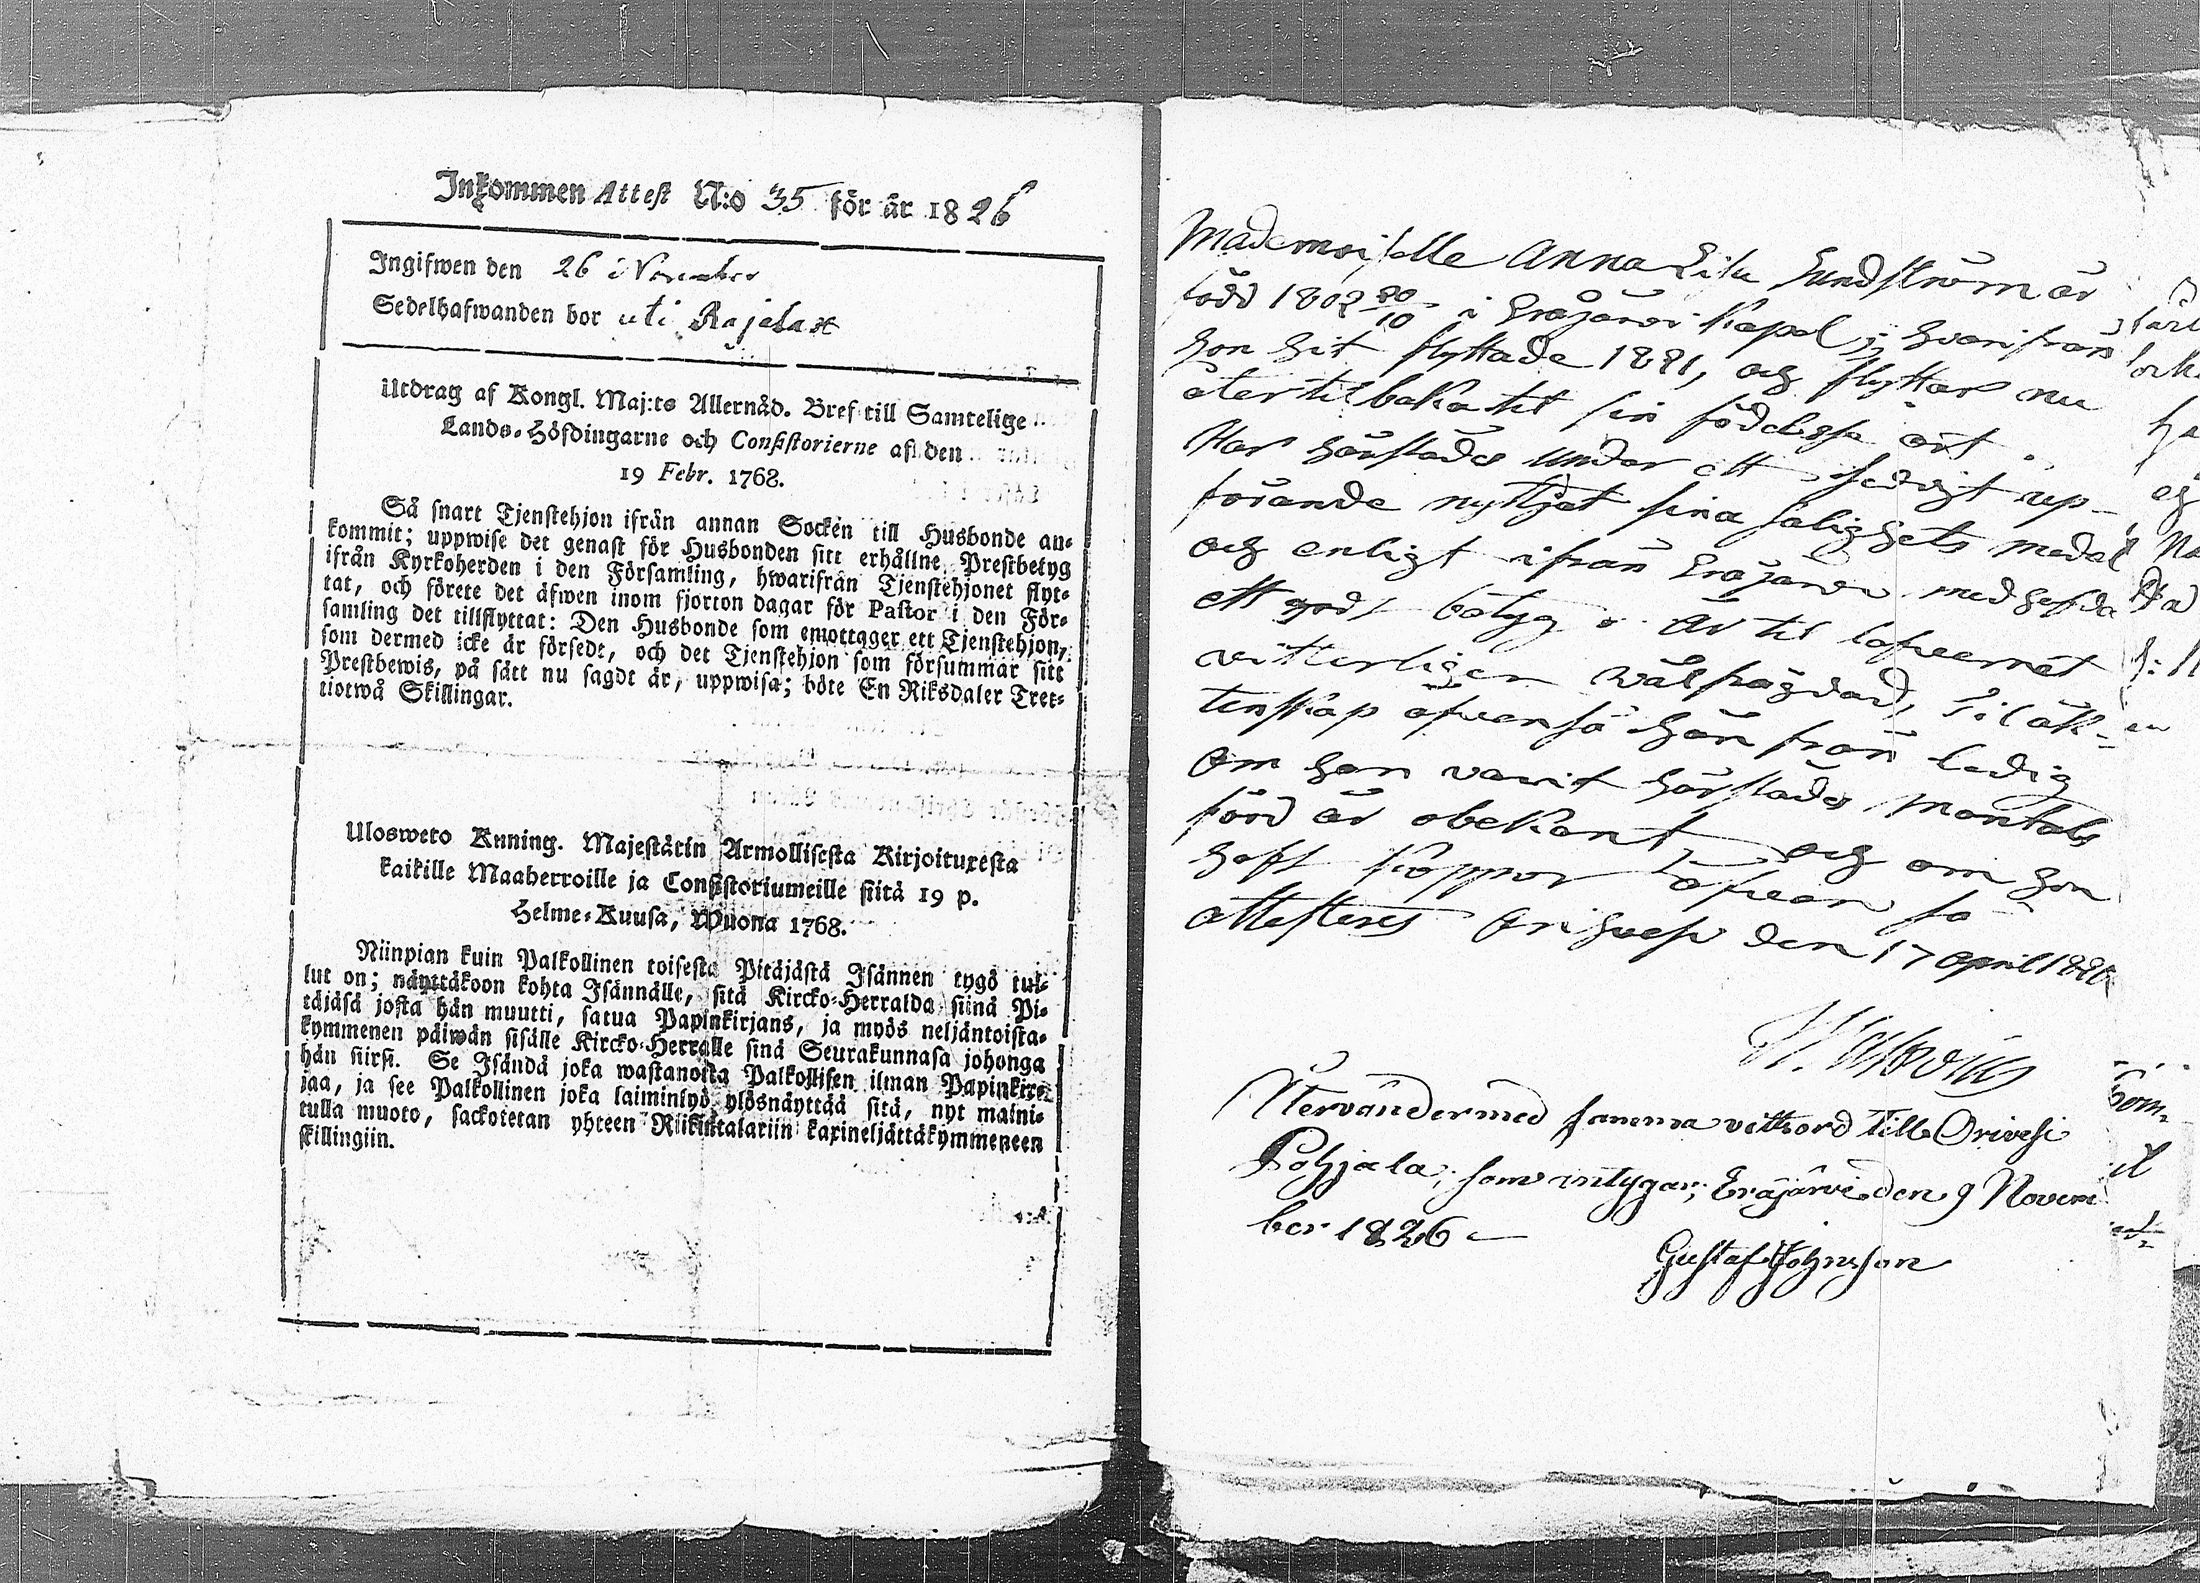 Inkommen Attest N:o 35 för år 1826
Ingifwen den 26 November
Sedelhafwanden bor uti Rajala
Utdrag af Kongl. Maj:ts Allernåd. Bref till Samtelige
Lands-Höfdingarne och Consistorierne af den
19 Febr. 1768.
Så snart Tjenstehjon ifrån annan Socken till Husbonde an-
kommit; uppwise det genast för Husbonden sitt erhållne Prestbetyg
ifrån Kyrkoherden i den Församling, hwarifrån Tjenstehjonet flyt-
tat, och förete det äfwen inom fjorton dagar för Pastor i den För-
samling det tillflyttat: Den Husbonde som emottager ett Tjenstehjon,
som dermed icke är försedt, och det Tjenstehjon som försummar sitt
Prestbewis, på sätt nu sagdt är, uppwisa; böte En Riksdaler Tret-
tiotwå Skillingar.
Ulosweto Kuning. Majestätin Armollisesta Kirjoituxesta
kaikille Maaherroille ja Consistoriumeille siitä 19 p.
Helme-Kuusa, Wuona 1768.
Niinpian kuin Palkollinen toisesta Pitäjästä Isännen tygö tul-
lut on; näyttäkoon kohta Isännälle, sitä Kircko-Herralda siinä Pi-
täjäsä josta hän muutti, saatua Papinkirjans, ja myös neljäntoista-
kymmenen päiwän sisälle Kircko-Herralle sinä Seurakunnasa johonga
hän siirsi. Se Isändä joka wastanotta Palkollisen ilman Papinkir-
jaa, ja see Palkollinen joka laiminlyö ylösnäyttää sitä, nyt maini-
tulla muoto, sackotetan yhteen Riikintalariin kaxineljättäkymmeneen
skillingiin.
Mademoiselle Anna Lisa Sundström är
född 1802 20/10 i Eräjärvi Kapel, hvarifrån
hon hit flyttade 1821, och flyttar nu
åter tilbaka til sin födelse ort.
Har härstädes under ett sedigt up-
förande nyttjat sina salighets medel
och enligt ifrån Eräjärvi medhafda
ett godt betyg är til lefvernet
vitterligen välfrägdad, til äk-
tenskap äfvenså härifrån ledig
om hon varit härstädes mantals
förd är obekant, och om hon
haft koppor äfven så
attesteras Orihvesi den 17 April 1826
Återvänder med samma vittsord till Orivesi
Pohjala; som intygar; Eräjärvi den 9 Novem
ber 1826
Gustaf Johnsson